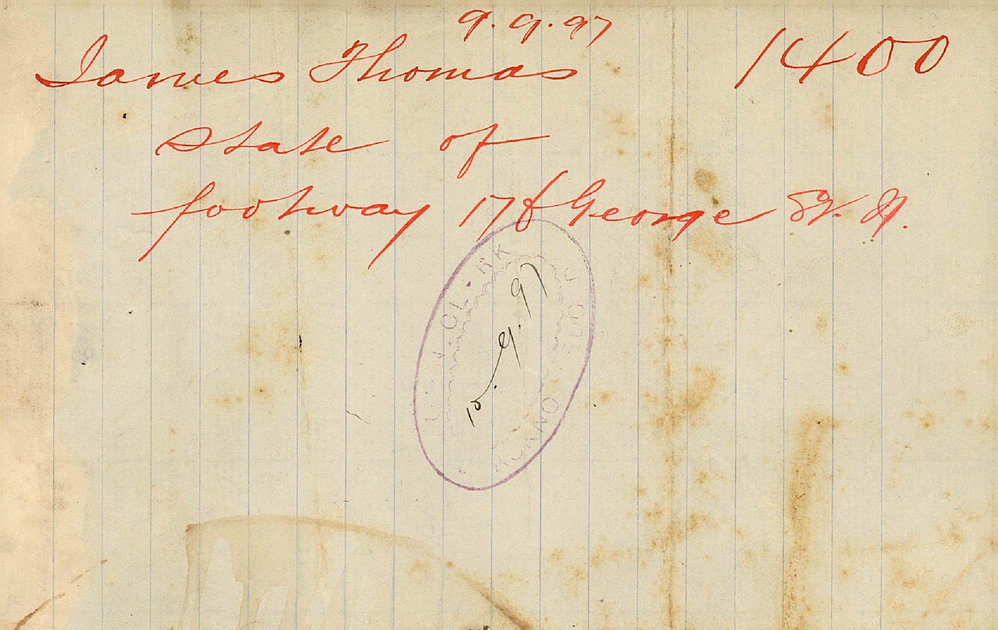 9.9.97
James Thomas 1400
State of
footway 176 George St. N.
10.9.97